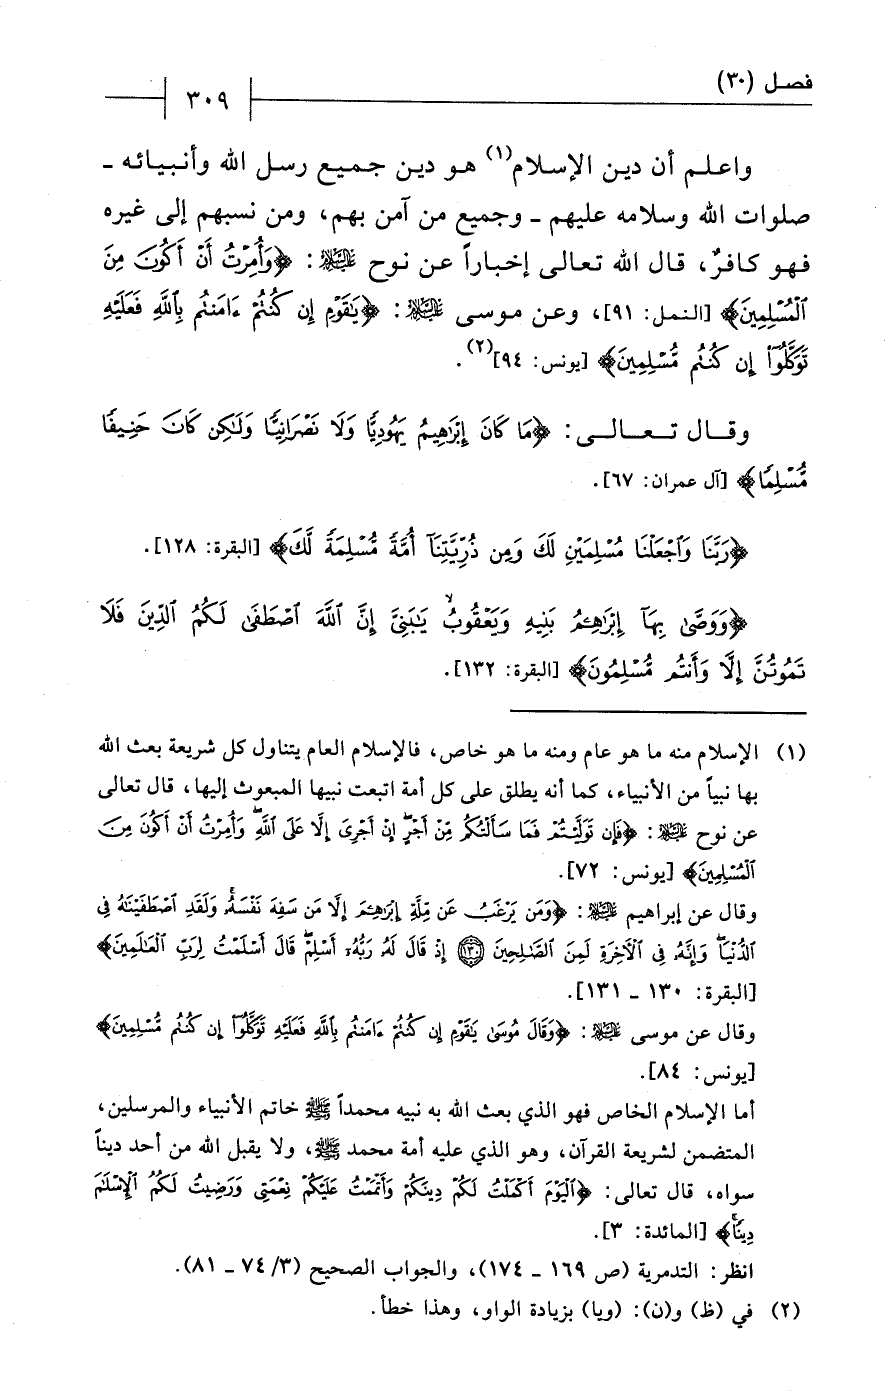 فصل (٣٠)
٣٠٩
واعلم أن دين الإسلام(١) هو دين جميع رسل الله وأنبيائه ـ
صلوات الله وسلامه عليهم ـ وجميع من آمن بهم، ومن نسبهم إلى غيره
فهو كافرٌ، قال الله تعالى إخباراً عن نوح عليه السلام: ﴿وَأُمِرْتُ أَنْ أَكُونَ مِنَ
الْمُسْلِمِينَ﴾ [النمل: ٩١]، وعن موسى عليه السلام: ﴿يَٰقَوْمِ إِن كُنتُمْ ءَامَنتُم بِاللَّهِ فَعَلَيْهِ
تَوَكَّلُوٓا۟ إِن كُنتُم مُّسْلِمِينَ﴾ [يونس: ٩٤](٢).
وقال تعالى: ﴿مَا كَانَ إِبْرَٰهِيمُ يَهُودِيًّا وَلَا نَصْرَانِيًّا وَلَٰكِن كَانَ حَنِيفًا
مُّسْلِمًا﴾ [آل عمران: ٦٧].
﴿رَبَّنَا وَاجْعَلْنَا مُسْلِمَيْنِ لَكَ وَمِن ذُرِّيَّتِنَآ أُمَّةً مُّسْلِمَةً لَّكَ﴾ [البقرة: ١٢٨].
﴿وَوَصَّىٰ بِهَآ إِبْرَٰهِۦمُ بَنِيهِ وَيَعْقُوبُ يَٰبَنِىَّ إِنَّ اللَّهَ اصْطَفَىٰ لَكُمُ الدِّينَ فَلَا
تَمُوتُنَّ إِلَّا وَأَنتُم مُّسْلِمُونَ﴾ [البقرة: ١٣٢].
(١) الإسلام منه ما هو عام ومنه ما هو خاص، فالإسلام العام يتناول كل شريعة بعث الله
بها نبياً من الأنبياء، كما أنه يطلق على كل أمة اتبعت نبيها المبعوث إليها، قال تعالى
عن نوح عليه السلام: ﴿فَإِن تَوَلَّيْتُمْ فَمَا سَأَلْتُكُم مِّنْ أَجْرٍ إِنْ أَجْرِىَ إِلَّا عَلَى اللَّهِ وَأُمِرْتُ أَنْ أَكُونَ مِنَ
الْمُسْلِمِينَ﴾ [يونس: ٧٢].
وقال عن إبراهيم عليه السلام: ﴿وَمَن يَرْغَبُ عَن مِّلَّةِ إِبْرَٰهِۦمَ إِلَّا مَن سَفِهَ نَفْسَهُۥ وَلَقَدِ اصْطَفَيْنَٰهُ فِى
الدُّنْيَا وَإِنَّهُۥ فِى الْءَاخِرَةِ لَمِنَ الصَّٰلِحِينَ ١٣٠ إِذْ قَالَ لَهُۥ رَبُّهُۥٓ أَسْلِمْ قَالَ أَسْلَمْتُ لِرَبِّ الْعَٰلَمِينَ﴾
[البقرة: ١٣٠ ـ ١٣١].
وقال عن موسى عليه السلام: ﴿وَقَالَ مُوسَىٰ يَٰقَوْمِ إِن كُنتُمْ ءَامَنتُم بِاللَّهِ فَعَلَيْهِ تَوَكَّلُوٓا۟ إِن كُنتُم مُّسْلِمِينَ﴾
[يونس: ٨٤].
أما الإسلام الخاص فهو الذي بعث الله به نبيه محمداً ﷺ خاتم الأنبياء والمرسلين،
المتضمن لشريعة القرآن، وهو الذي عليه أمة محمد ﷺ، ولا يقبل الله من أحد ديناً
سواه، قال تعالى: ﴿الْيَوْمَ أَكْمَلْتُ لَكُمْ دِينَكُمْ وَأَتْمَمْتُ عَلَيْكُمْ نِعْمَتِى وَرَضِيتُ لَكُمُ الْإِسْلَٰمَ
دِينًا﴾ [المائدة: ٣].
انظر: التدمرية (ص ١٦٩ ـ ١٧٤)، والجواب الصحيح (٣/ ٧٤ ـ ٨١).
(٢) في (ظ) و(ن): (ويا) بزيادة الواو، وهذا خطأ.